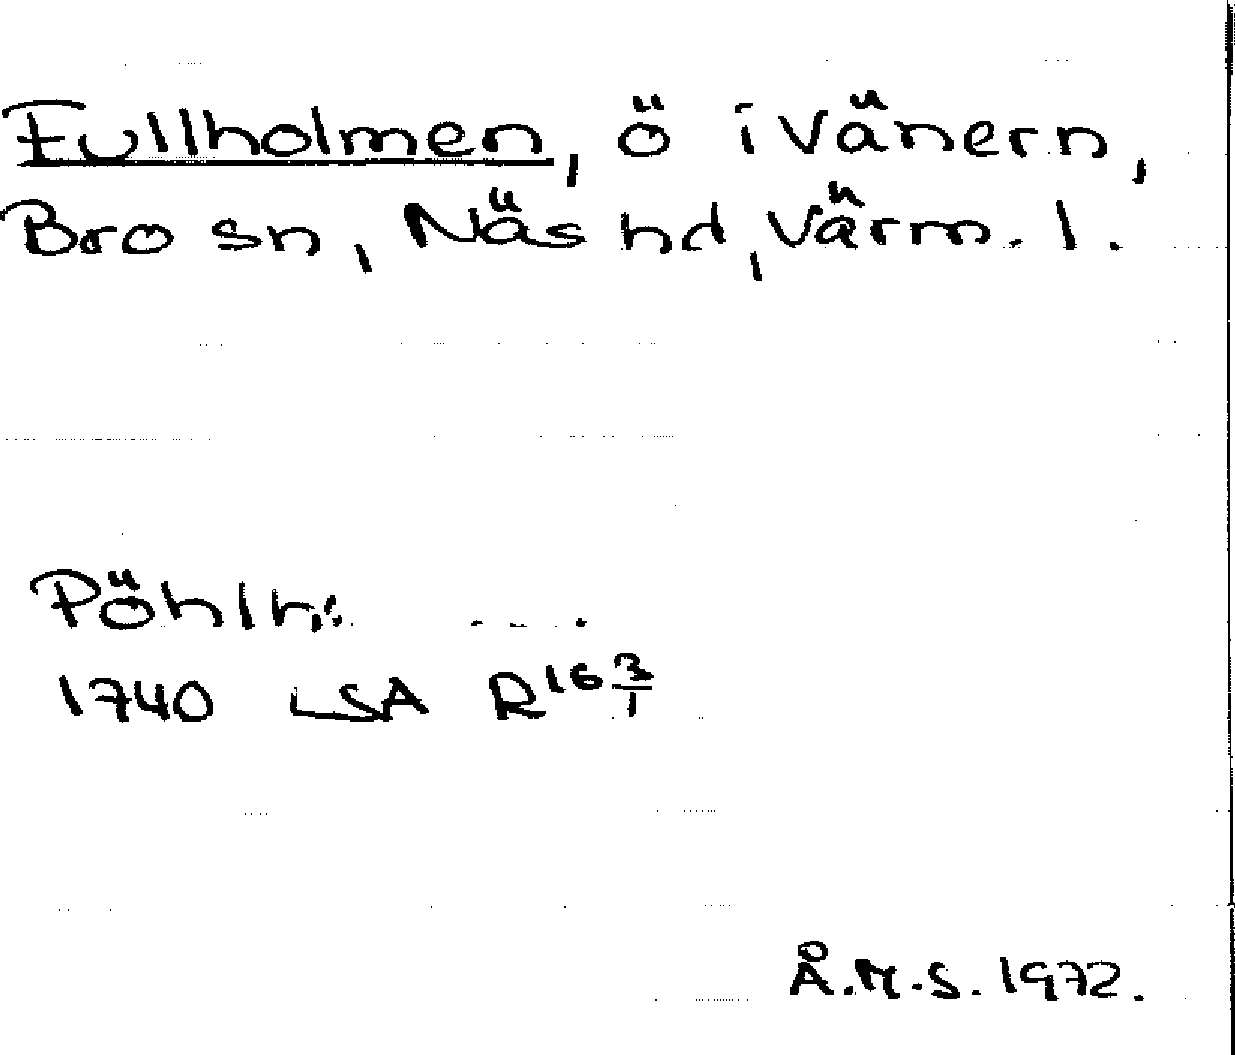 Fullholmen, ö i Vänern,
Bro sn, Näs hd, Värm. l.
1740 LSA R16 3/1
Å.M.S. 1972.